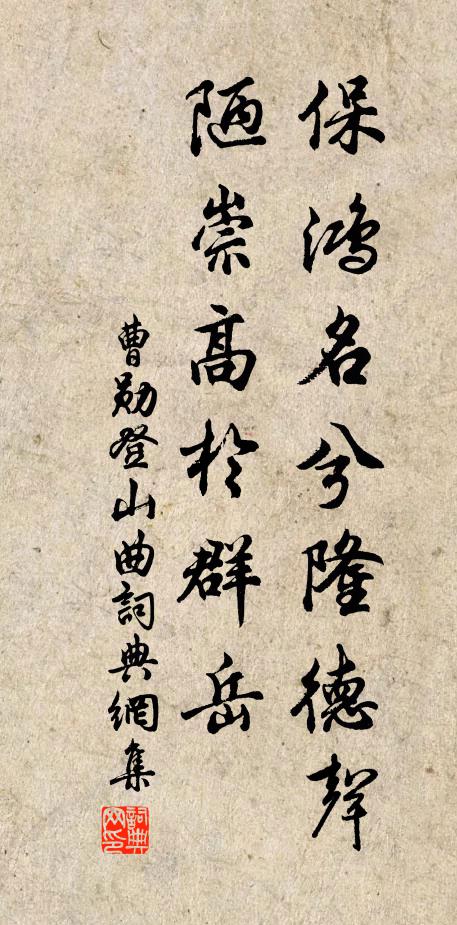 保鴻名兮隆德聲
陋崇高於群岳
曹勛登山曲詞典網集
詞典网印